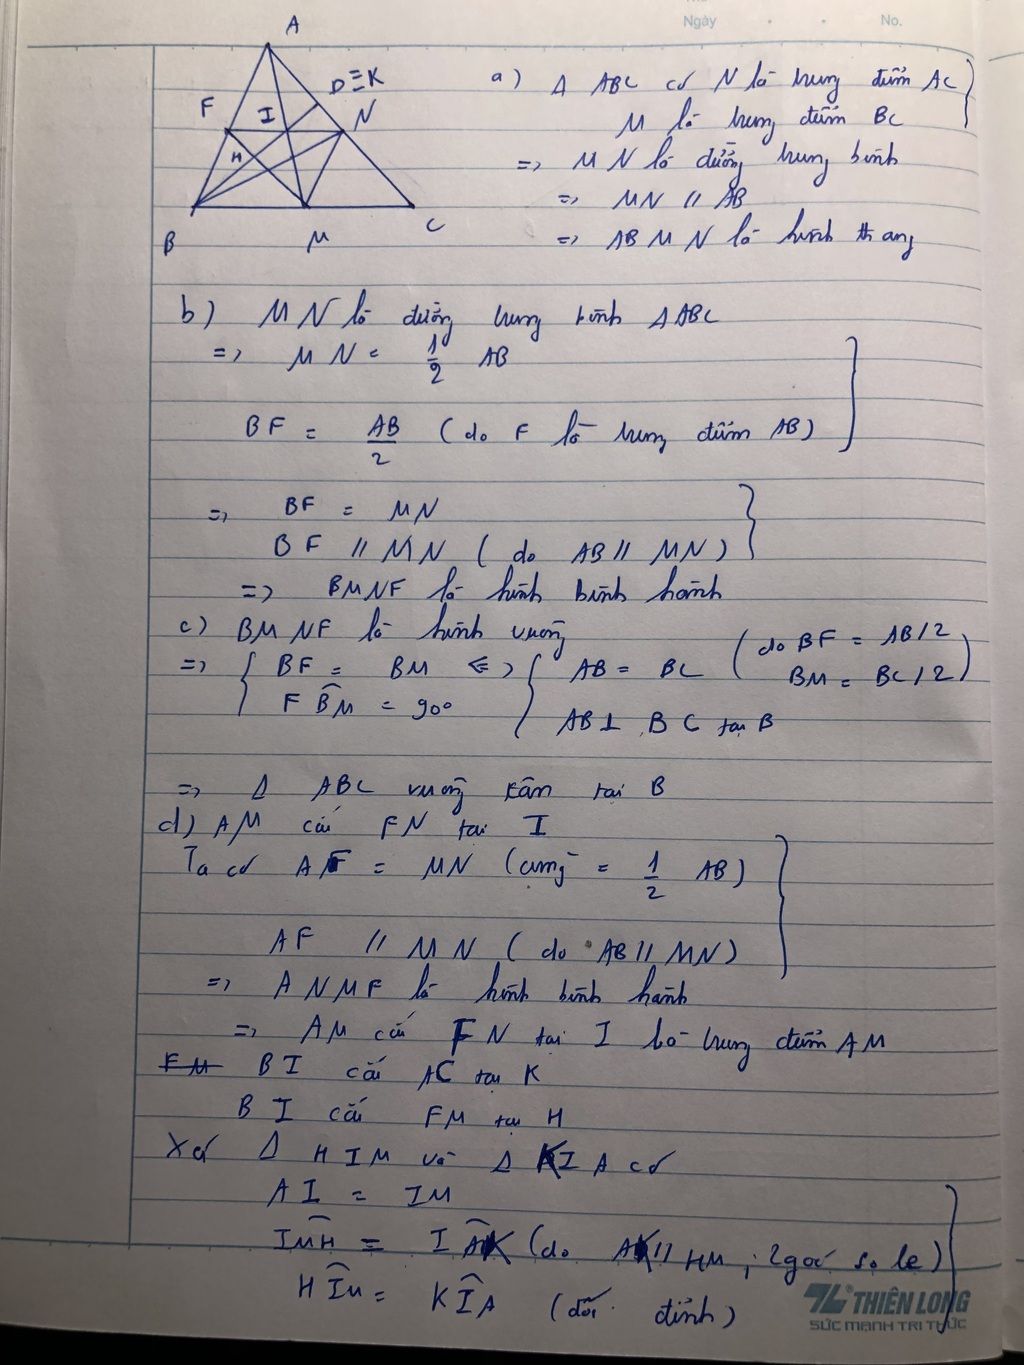 Ngày
No.
A
D≡K
F
I
N
H
B
M
C
a) Δ ABC có N là trung điểm AC
M là trung điểm BC
=> MN là đường trung bình
=> MN // AB
=> ABMN là hình thang
b) MN là đường trung bình ΔABC
=> MN = 1/2 AB
BF = AB/2 (do F là trung điểm AB)
=> BF = MN
BF // MN (do AB // MN)
=> BMNF là hình bình hành
c) BMNF là hình vuông
=> { BF = BM <=> { AB = BC (do BF = AB/2
BM = BC/2)
FBM = 90°
AB ⊥ BC tại B
=> Δ ABC vuông cân tại B
d) AM cắt FN tại I
Ta có AF = MN (cùng = 1/2 AB)
AF // MN (do AB // MN)
=> ANMF là hình bình hành
=> AM cắt FN tại I là trung điểm AM
FM BI cắt AC tại K
BI cắt FM tại H
Xét Δ HIM và Δ KIA có
AI = IM
IMH = IAK (do AK // HM; 2 góc so le)
HIM = KIA (đối đỉnh)
TL THIÊN LONG
SỨC MẠNH TRI THỨC